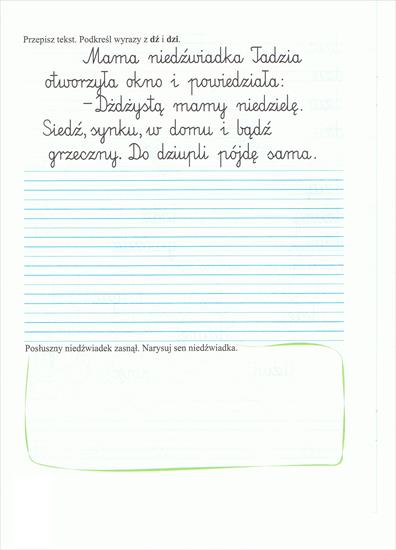 Przepisz tekst. Podkreśl wyrazy z dź i dzi.
Mama niedźwiadka Tadzia
otworzyła okno i powiedziała:
– Dżdżystą mamy niedzielę.
Siedź, synku, w domu i bądź
grzeczny. Do dziupli pójdę sama.
Posłuszny niedźwiadek zasnął. Narysuj sen niedźwiadka.